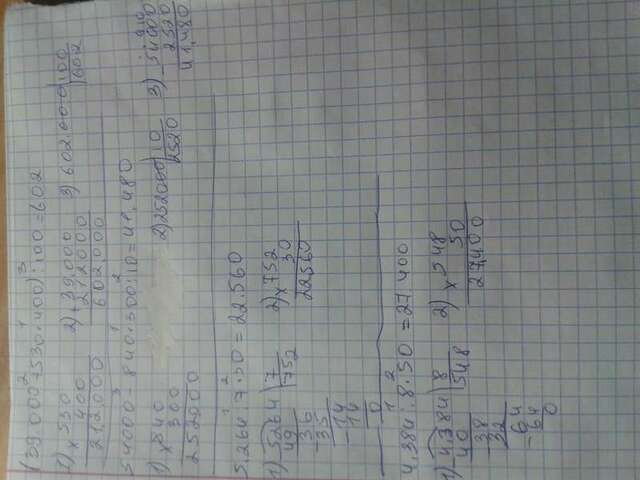 (39 000 + 530 · 400) : 100 = 602
1) × 530
400
212000
2) + 39.000
212000
602.000
3) 602 000 | 100
602
54000 - 840 · 300 : 10 = 41.480
1) × 840
300
252000
2) 252000 | 10
2520
3) - 54000
2520
41.480
5.264 : 7 · 30 = 22.560
1) 5264 | 7
49 752
36
- 35
14
- 14
0
2) × 752
30
22560
4.384 : 8 · 50 = 27.400
1) - 4384 | 8
40 548
38
32
64
- 64
0
2) × 548
50
27.400